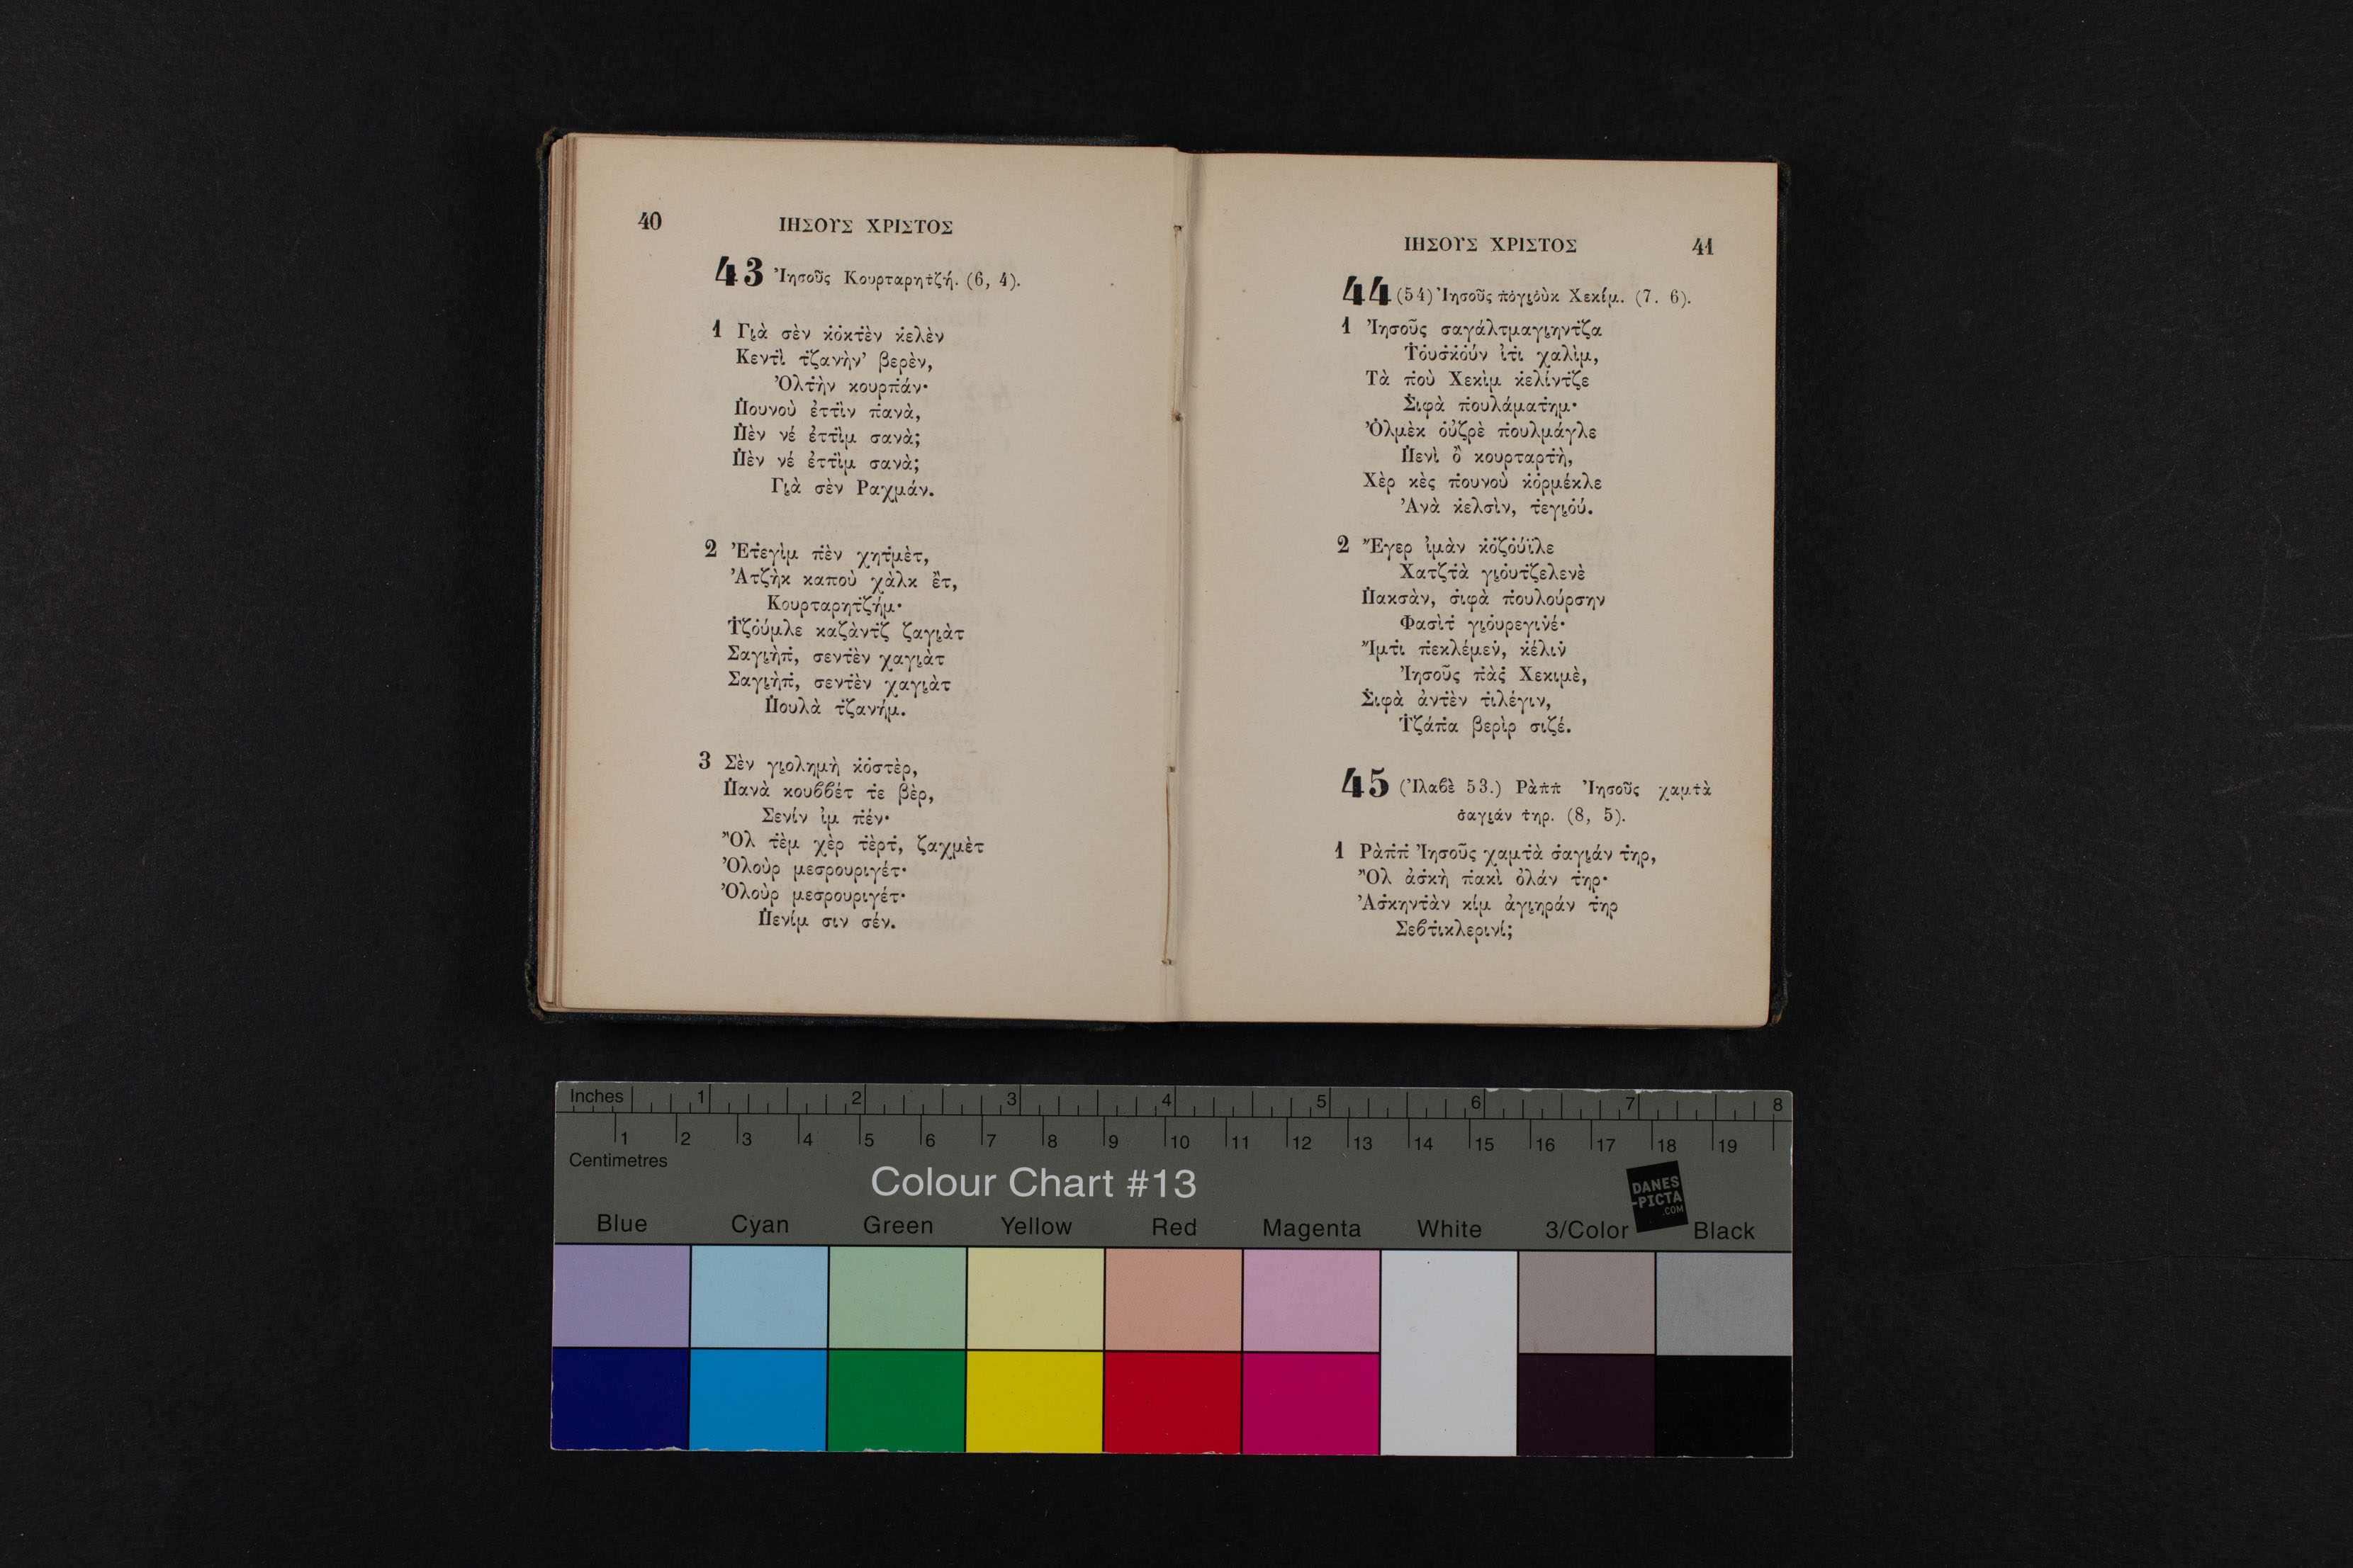 40
ΙΗΣΟΥΣ ΧΡΙΣΤΟΣ
43 Ἰησοῦς Κουρταρητζή. (6, 4).
1 Γι̮ὰ σὲν κ̇ὀκτ̇ὲν κ̇ελὲν
Κεντ̇ὶ τ̇ζανὴν’ βερὲν,
Ὀλτ̇ὴν κουρπ̇άν·
Π̇ουνοὺ ἐττ̇ὶν π̇ανὰ,
Π̇ὲν νέ ἐττ̇ὶμ σανὰ;
Π̇ὲν νέ ἐττ̇ὶμ σανὰ;
Γι̮ὰ σὲν Ραχμάν.
2 Ἐτ̇εγὶμ π̇ὲν χητ̇μὲτ,
Ἀτζὴκ καποὺ χὰλκ ἒτ,
Κουρταρητ̇ζήμ·
Τ̇ζο̇ύμλε καζὰντ̇ζ ζαγι̮ὰτ
Σαγι̮ὴπ̇, σεντ̇ὲν χαγι̮ὰτ
Σαγι̮ὴπ̇, σεντ̇ὲν χαγι̮ὰτ
Π̇ουλὰ τ̇ζανήμ.
3 Σὲν γι̮ολημὴ κ̇ο̇στὲρ,
Π̇ανὰ κουϐϐέτ τ̇ε βὲρ,
Σενίν ἰμ π̇έν·
Ὂλ τ̇ὲμ χὲρ τ̇ὲρτ̇, ζαχμὲτ
Ὀλοὺρ μεσρουριγέτ·
Ὀλοὺρ μεσρουριγέτ·
Π̇ενίμ σιν σέν.
ΙΗΣΟΥΣ ΧΡΙΣΤΟΣ
41
44 (54) Ἰησοῦς π̇ο̇γι̮ο̇ὺκ Χεκίμ. (7. 6).
1 Ἰησοῦς σαγάλτμαγι̮ηντ̇ζα
Τ̇ο̇υσ̇κ̇ο̇ύν ἰτ̇ι χαλὶμ,
Τὰ π̇οὺ Χεκὶμ κ̇ελίντ̇ζε
Σ̇ιφὰ π̇ουλάματ̇ημ·
Ὀ̇λμὲκ ο̇ὐζρὲ π̇ουλμάγλε
Π̇ενὶ ὂ κουρταρτ̇ὴ,
Χὲρ κὲς π̇ουνοὺ κ̇ο̇ρμέκλε
Ἀνὰ κ̇ελσὶν, τ̇εγι̮ο̇ύ.
2 Ἔγερ ἰμὰν κ̇ο̇ζο̇ύϊλε
Χατζτ̇ὰ γι̮ο̇υτ̇ζελενὲ
Π̇ακσὰν, σ̇ιφὰ π̇ουλούρσην
Φασὶτ̇ γι̮ο̇υρεγιν̇έ·
Ἴμτ̇ι π̇εκλέμεν̇, κ̇έλιν̇
Ἰησοῦς π̇ὰς̇ Χεκιμὲ,
Σ̇ιφὰ ἀντ̇ὲν τ̇ιλέγιν,
Τ̇ζάπ̇α βερὶρ σιζέ.
45 (Ἰλαϐὲ 53.) Ρὰπ̇π̇ Ἰησοῦς χαμτ̇ὰ
σ̇αγι̮άν τ̇ηρ. (8, 5).
1 Ρὰπ̇π̇ Ἰησοῦς χαμτ̇ὰ σ̇αγι̮άν τ̇ηρ,
Ὂλ ἀσ̇κὴ π̇ακὶ ὀλάν τ̇ηρ·
Ἀσ̇κηντ̇ὰν κίμ ἀγι̮ηράν τ̇ηρ
Σεϐτ̇ικλερινί;
Inches
1 2 3 4 5 6 7 8
1 2 3 4 5 6 7 8 9 10 11 12 13 14 15 16 17 18 19
Centimetres
Colour Chart #13
DANES
-PICTA
.COM
Blue Cyan Green Yellow Red Magenta White 3/Color Black